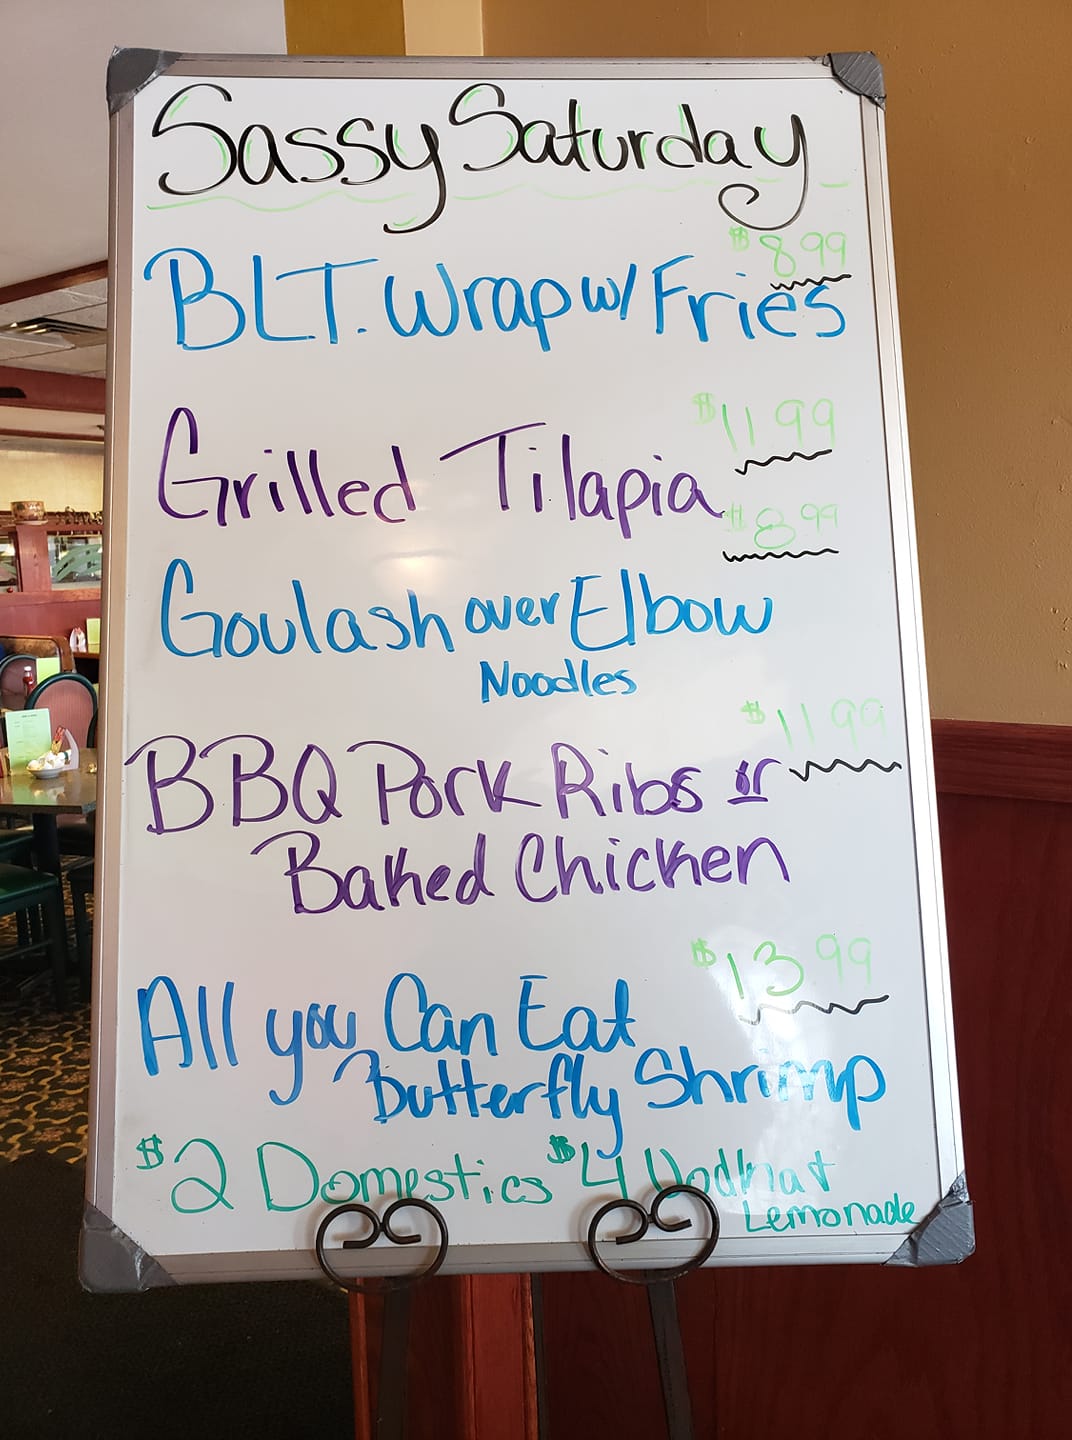 Sassy Saturday
$8.99
BLT. Wrap w/ Fries
$11.99
Grilled Tilapia
$8.99
Goulash over Elbow
Noodles
$11.99
BBQ Pork Ribs or
Baked Chicken
$13.99
All you Can Eat
Butterfly Shrimp
$2 Domestics $4 Vodka
Lemonade